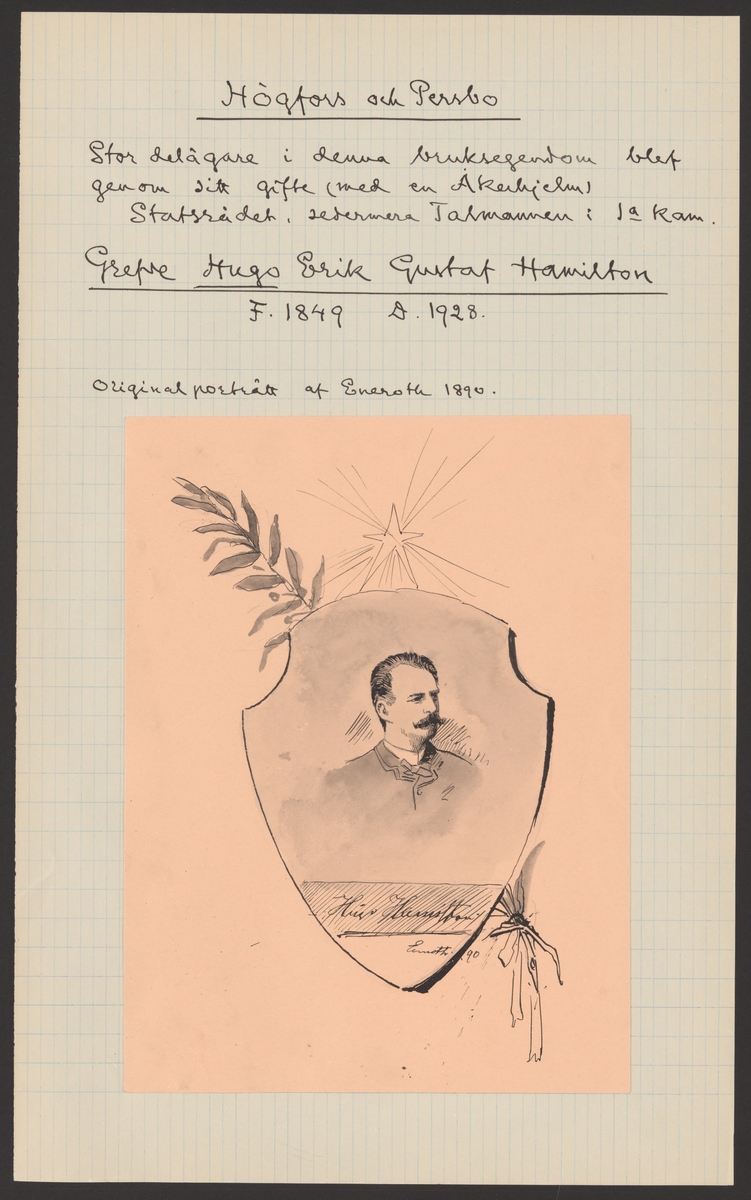 Högfors och Persbo
Stor delägare i denna bruksegendom blef
genom sitt gifte (med en Åkerhjelm)
Statsrådet, sedermera Talmannen i 1a Kam.
Grefve Hugo Erik Gustaf Hamilton
F. 1849 D. 1928.
Originalporträtt af Eneroth 1890.
Hugo Hamilton
Eneroth. 90